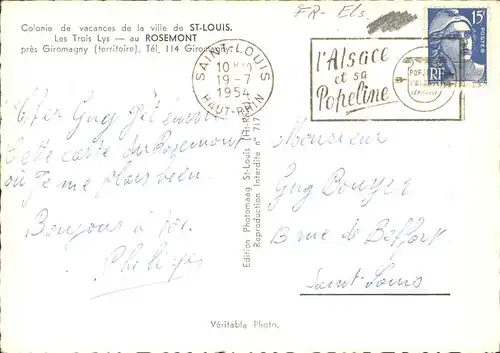 Colonie de vacances de la ville de ST-LOUIS.
Les Trois Lys — au ROSEMONT
près Giromagny (territoire), Tél. 114 Giromagny.
FR- Els.
SAINT-LOUIS
19-7
1954
HAUT-RHIN
l'Alsace
et sa
Popeline
15F
POSTES
RF
Cher Guy
cette carte du Rosemont
où je me plais bien.
Bonjour à toi.
Philippe
Edition Photomaag St-Louis
Reproduction Interdite n° 717
Monsieur
Guy
rue de Belfort
Saint Louis
Véritable Photo.